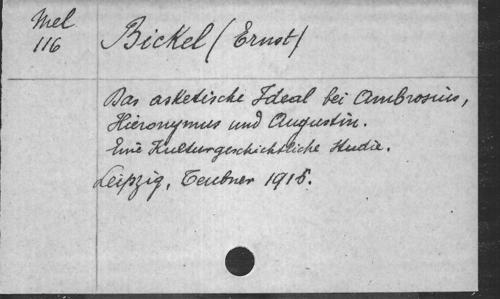 Mel
116
Bickel (Ernst)
Das asketische Ideal bei Ambrosius,
Hieronymus und Augustin.
Eine Kulturgeschichtliche Studie.
Leipzig, Teubner 1915.